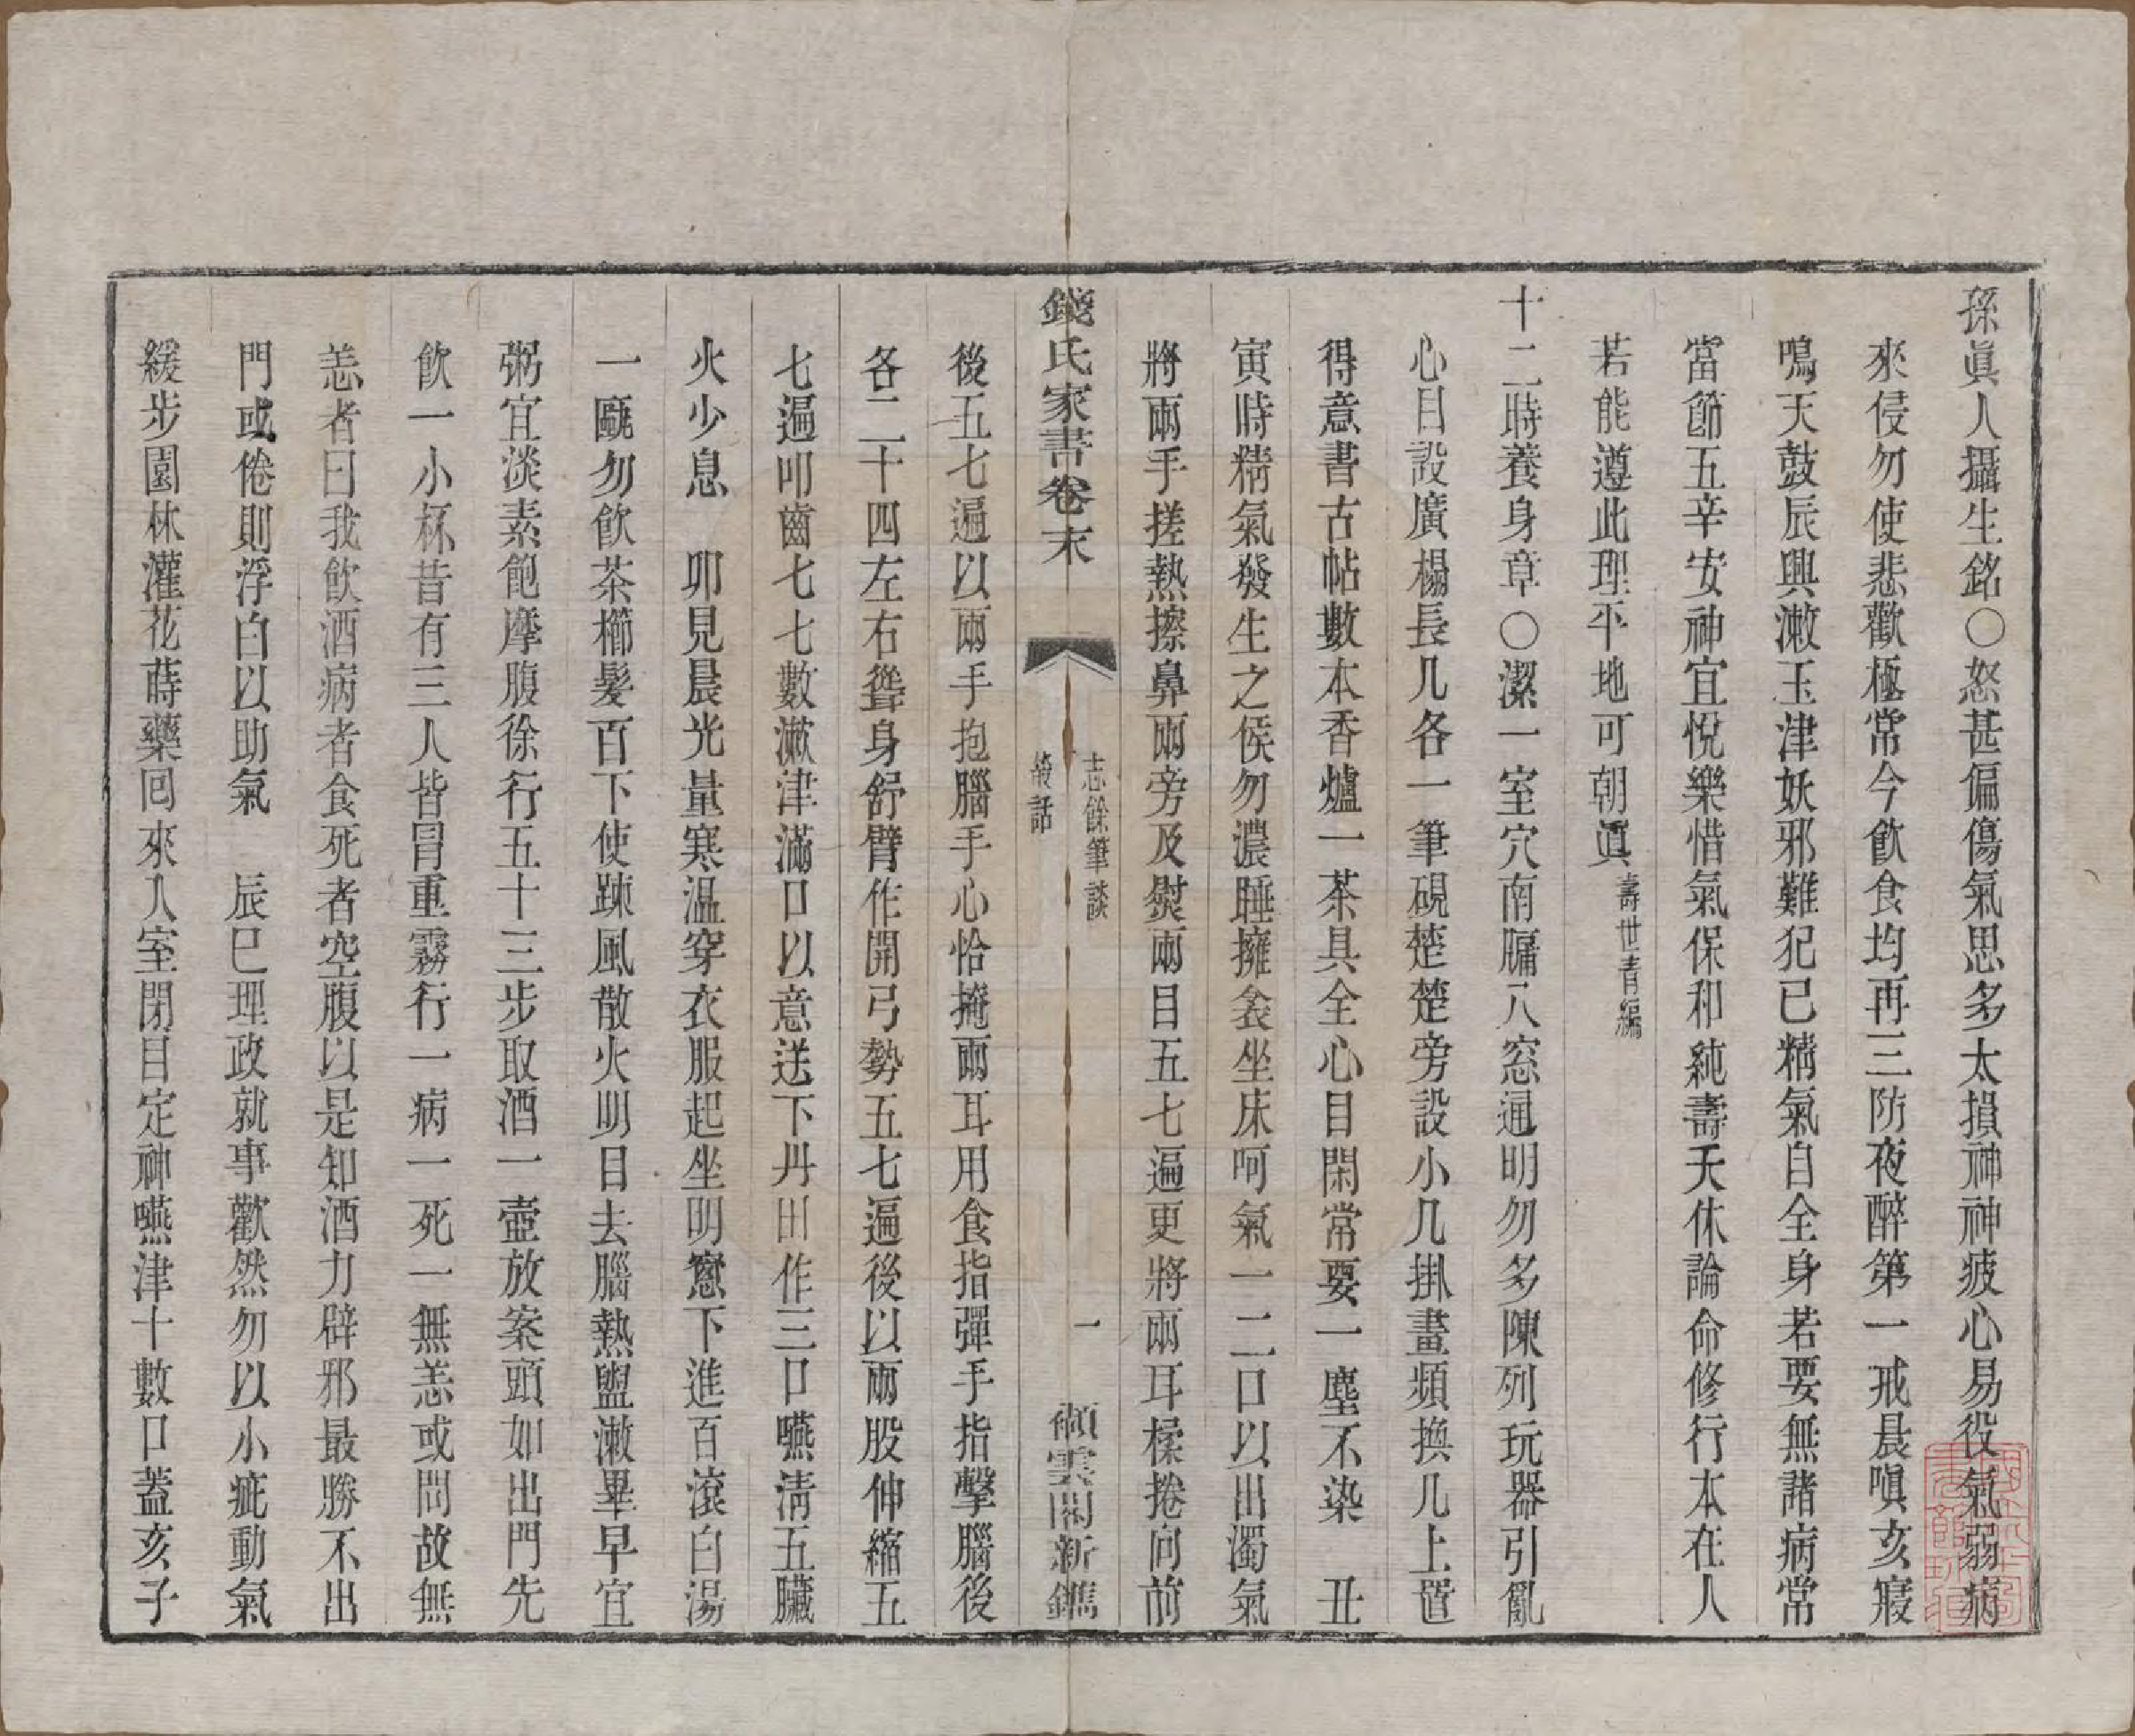 孫眞人攝生銘○怒甚偏傷氣思多太損神神疲心易役氣弱病
來侵勿使悲歡極常令飲食均再三防夜醉第一戒晨嗔亥寢
鳴天鼓辰興漱玉津妖邪難犯已精氣自全身若要無諸病常
當節五辛安神宜悅樂惜氣保和純壽夭休論命修行本在人
若能遵此理平地可朝眞壽世青編
十二時養身章○潔一室穴南牖八窓通明勿多陳列玩器引亂
心目設廣榻長几各一筆硯楚楚旁設小几掛畫頻換几上置
得意書古帖數本香爐一茶具全心目閑常要一塵不染　丑
寅時精氣發生之候勿濃睡擁衾坐床呵氣一二口以出濁氣
將兩手搓熱擦鼻兩旁及熨兩目五七遍更將兩耳揉捲向前
錢氏家書卷末
志餘筆談
叢話
一
頤雲閣新鐫
後五七遍以兩手抱腦手心恰掩兩耳用食指彈手指擊腦後
各二十四左右聳身舒臂作開弓勢五七遍後以兩股伸縮五
七遍叩齒七七數漱津滿口以意送下丹田作三口嚥淸五臟
火少息　卯見晨光量寒温穿衣服起坐明窻下進百滾白湯
一甌勿飲茶櫛髮百下使踈風散火明目去腦熱盥漱畢早宜
粥宜淡素飽摩腹徐行五十三步取酒一壺放案頭如出門先
飲一小杯昔有三人皆冒重霧行一病一死一無恙或問故無
恙者曰我飲酒病者食死者空腹以是知酒力辟邪最勝不出
門或倦則浮白以助氣　辰巳理政就事歡然勿以小疵動氣
緩步園林灌花蒔藥回來入室閉目定神嚥津十數口蓋亥子